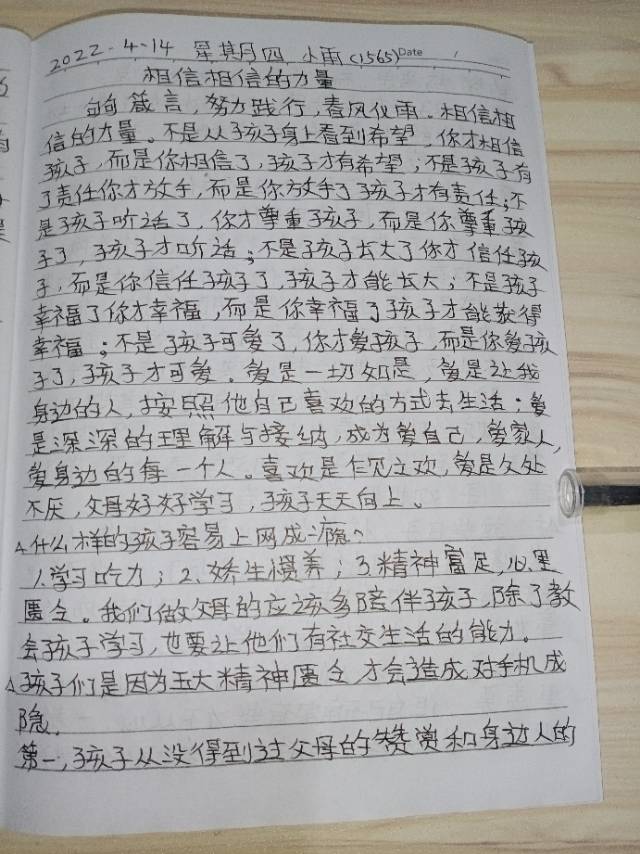 2022.4.14 星期四 小雨(1565)Date
相信相信的力量
句句箴言,努力践行,春风化雨。相信相
信的力量。不是从孩子身上看到希望,你才相信
孩子,而是你相信了,孩子才有希望;不是孩子有
了责任你才放手,而是你放手了孩子才有责任;不
是孩子听话了,你才尊重孩子,而是你尊重孩
子了,孩子才听话;不是孩子长大了你才信任孩
子,而是你信任孩子了,孩子才能长大;不是孩子
幸福了你才幸福,而是你幸福了孩子才能获得
幸福;不是孩子可爱了,你才爱孩子,而是你爱孩
子了,孩子才可爱。爱是一切如是,爱是让我
身边的人,按照他自己喜欢的方式去生活;爱
是深深的理解与接纳,成为爱自己,爱家人,
爱身边的每一个人。喜欢是乍见之欢,爱是久处
不厌,父母好好学习,孩子天天向上。
什么样的孩子容易上网成瘾
1、学习吃力;2、娇生惯养;3精神富足,心里
匮乏。我们做父母的应该多陪伴孩子,除了教
会孩子学习,也要让他们有社交生活的能力。
孩子们是因为五大精神匮乏才会造成对手机成
隐。
第一,孩子从没得到过父母的赞赏和身边人的